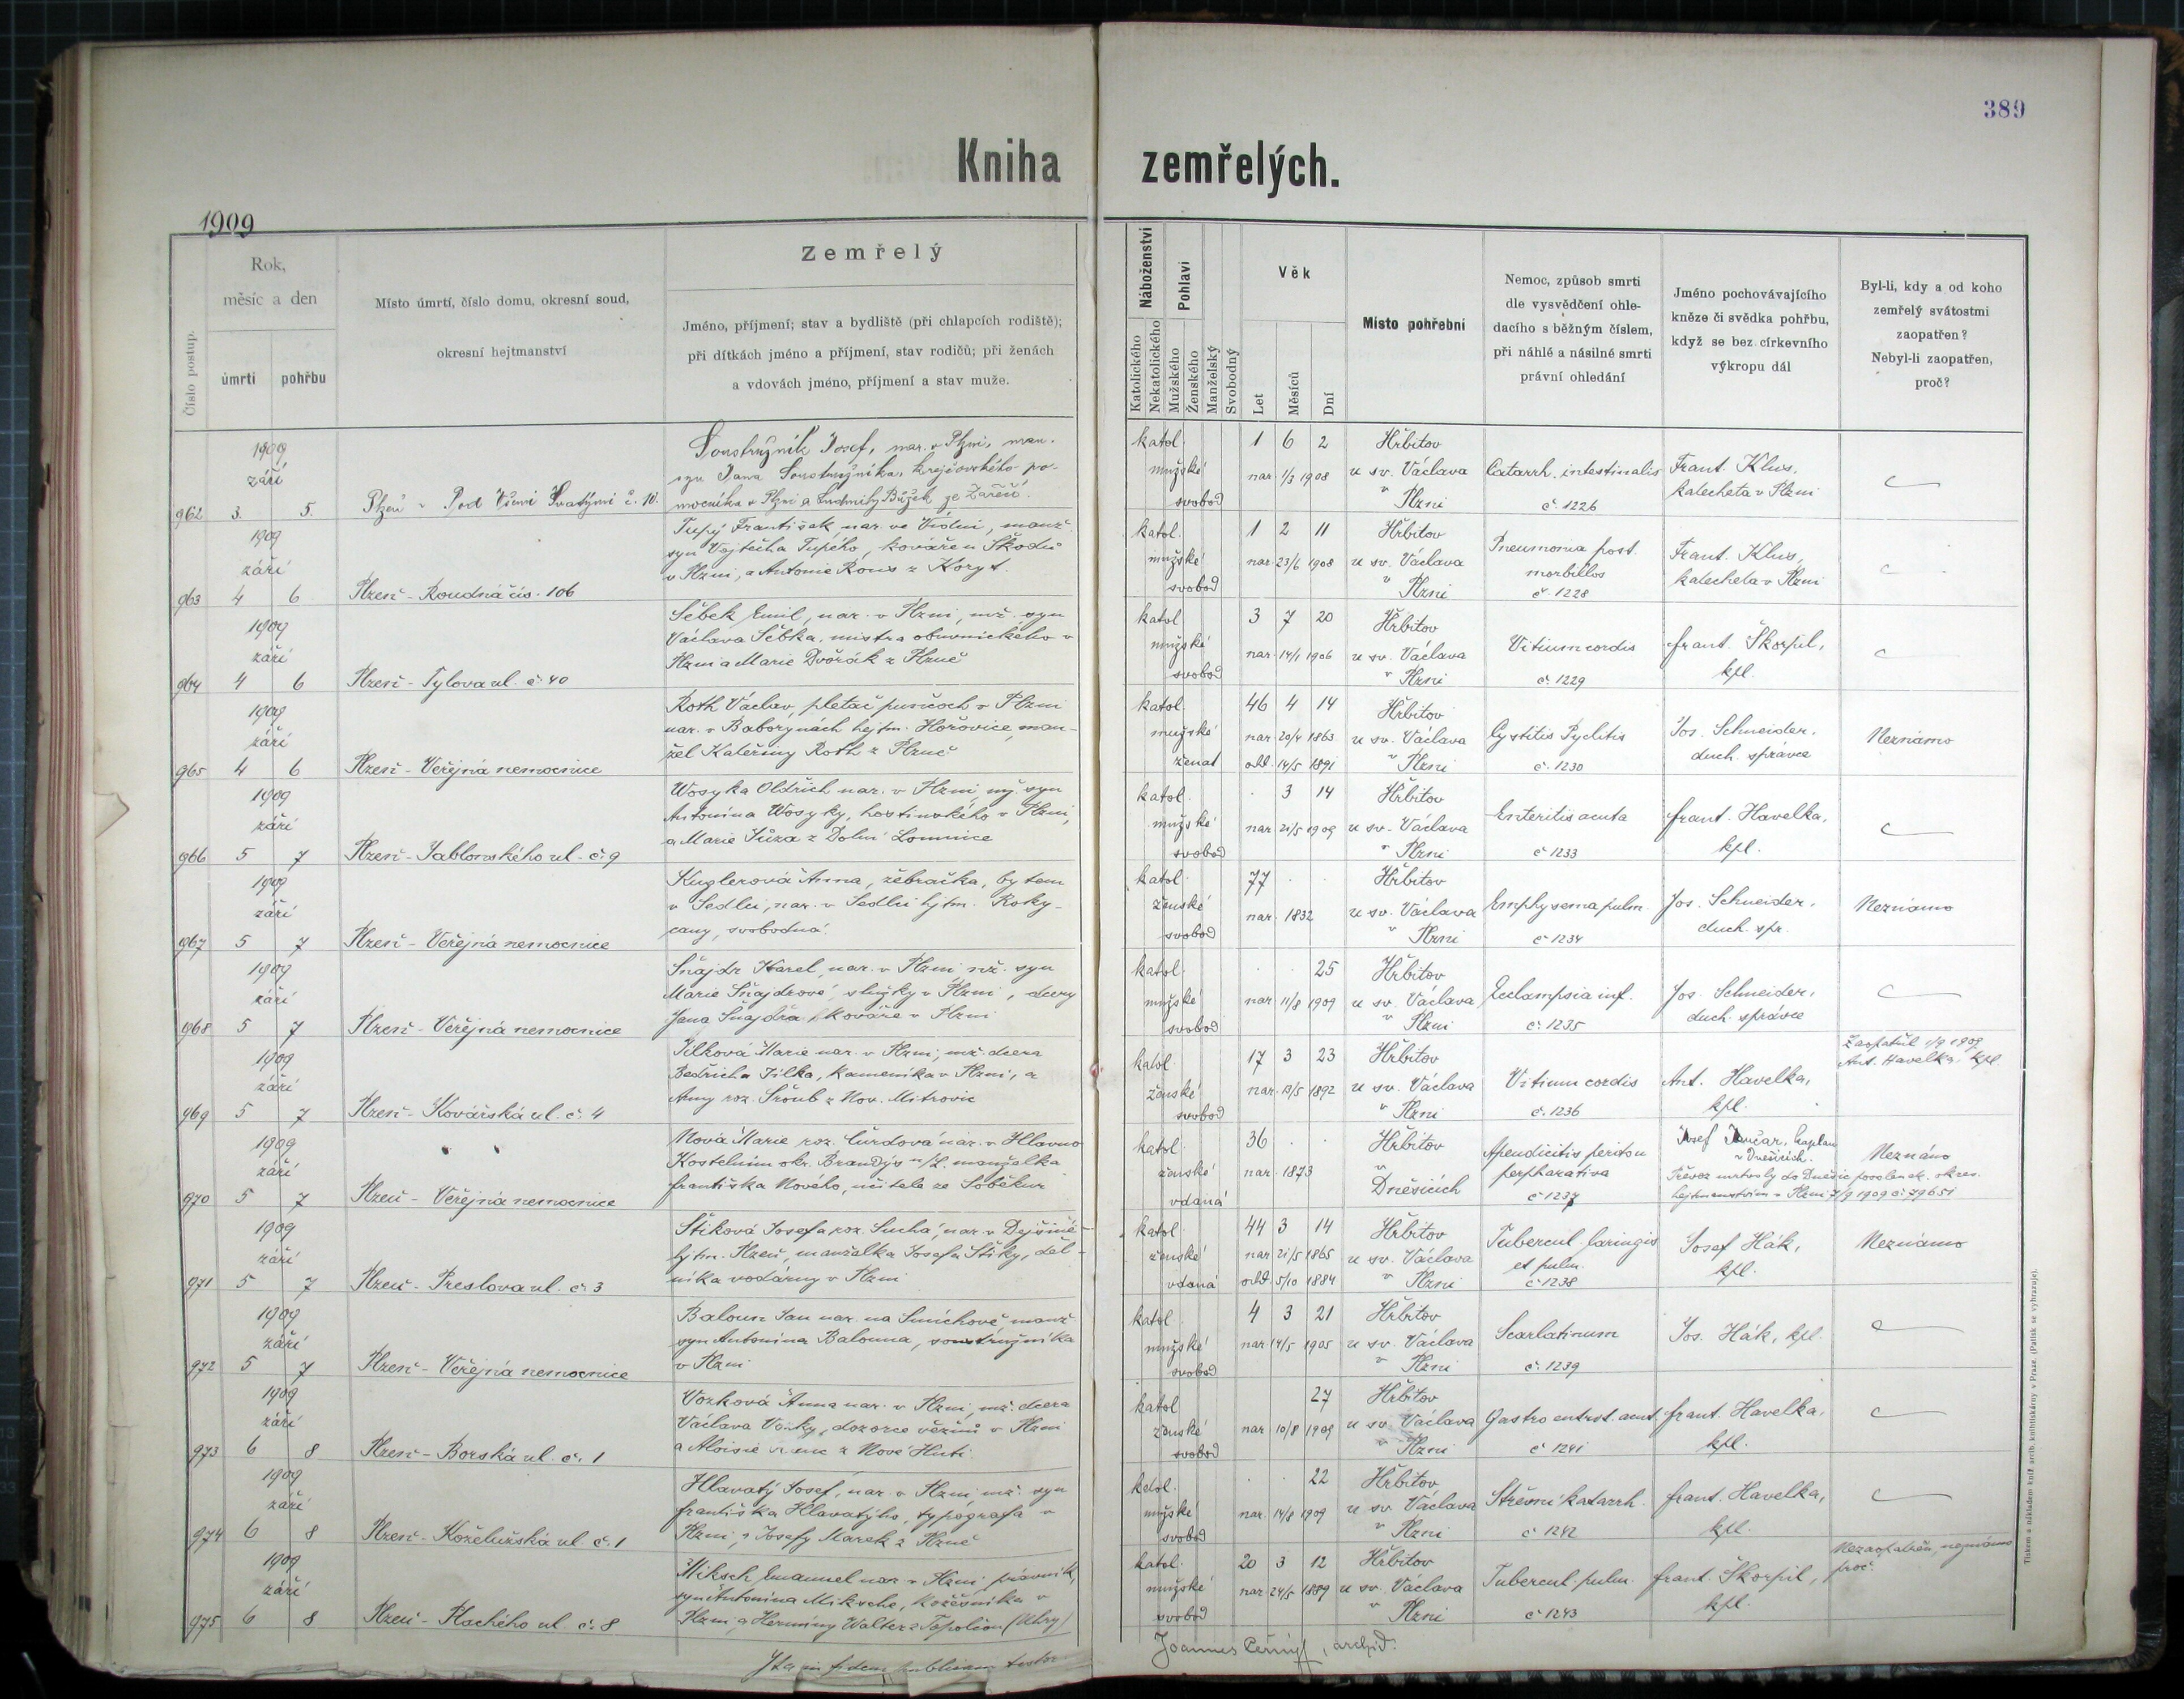 389
Kniha zemřelých.
1909
Číslo postup.
Rok,
měsíc a den
úmrtí
pohřbu
Místo úmrtí, číslo domu, okresní soud,
okresní hejtmanství
Zemřelý
Jméno, příjmení; stav a bydliště (při chlapcích rodiště);
při dítkách jméno a příjmení, stav rodičů; při ženách
a vdovách jméno, příjmení a stav muže.
Náboženství
Katolického
Nekatolického
Pohlaví
Mužského
Ženského
Manželský
Svobodný
Věk
Let
Měsíců
Dní
Místo pohřební
Nemoc, způsob smrti
dle vysvědčení ohle-
dacího s běžným číslem,
při náhlé a násilné smrti
právní ohledání
Jméno pochovávajícího
kněze či svědka pohřbu,
když se bez církevního
výkropu dál
Byl-li, kdy a od koho
zemřelý svátostmi
zaopatřen?
Nebyl-li zaopatřen,
proč?
962
1909
září
3. 5.
Plzeň - Pod Všemi Svatými č. 10.
Soustružník Josef, nar. v Plzni, man.
syn Jana Soustružníka, krejčovského po-
mocníka v Plzni a Ludmily Bůžek ze Záření.
katol.
mužské
svobod
1 6 2
nar. 1/3 1908
Hřbitov
u sv. Václava
v Plzni
Catarrh. intestinalis
č. 1226
Frant. Klus,
katecheta v Plzni
963
1909
září
4 6
Plzeň - Roudná čís. 106
Tupý František nar. ve Vídni, manž.
syn Vojtěcha Tupého, kováře u Škodů
v Plzni, a Antonie Rous z Koryt.
katol.
mužské
svobod
1 2 11
nar. 23/6 1908
Hřbitov
u sv. Václava
v Plzni
Pneumonia post.
morbillos
č. 1228
Frant. Klus,
katecheta v Plzni
964
1909
září
4 6
Plzeň - Tylova ul. č. 40
Sebek Emil, nar. v Plzni, mž. syn
Václava Sebka, mistra obuvnického v
Plzni a Marie Dvořák z Plzně
katol
mužské
svobod
3 7 20
nar. 14/1 1906
Hřbitov
u sv. Václava
v Plzni
Vitium cordis
č. 1229
Frant. Škorpil,
kpl.
965
1909
září
4 6
Plzeň - Veřejná nemocnice
Roth Václav, pletač punčoch v Plzni
nar. v Baborynách hejtm. Hořovice, man-
žel Kateřiny Roth z Plzně
katol.
mužské
ženat
46 4 14
nar. 20/4 1863
odd. 14/5 1891
Hřbitov
u sv. Václava
v Plzni
Cystitis Pyelitis
č. 1230
Jos. Schneider,
duch. správce
Neznámo
966
1909
září
5 7
Plzeň - Jablonského ul. č. 9
Wosyka Oldřich nar. v Plzni, mž. syn
Antonína Wosyky, hostinského v Plzni,
a Marie Jůza z Dolní Lomnice
katol.
mužské
svobod
3 14
nar. 21/5 1909
Hřbitov
u sv. Václava
v Plzni
Enteritis acuta
č 1233
Frant. Havelka,
kpl.
967
1909
září
5 7
Plzeň - Veřejná nemocnice
Kuglerová Anna, žebračka, bytem
v Sedlci, nar. v Sedlci hjtm. Roky-
cany, svobodná.
katol.
ženské
svobod
77
nar. 1832
Hřbitov
u sv. Václava
v Plzni
Emphysema pulm.
č 1234
Jos. Schneider,
duch. spr.
Neznámo
968
1909
září
5 7
Plzeň - Veřejná nemocnice
Šnajdr Karel, nar. v Plzni nž. syn
Marie Šnajdrové, služky v Plzni, dcery
Jana Šnajdra, kováře v Plzni
katol.
mužské
svobod
25
nar. 11/8 1909
Hřbitov
u sv. Václava
v Plzni
Eclampsia inf.
č. 1235
Jos. Schneider,
duch. správce
969
1909
září
5 7
Plzeň - Kovářská ul. č. 4
Jílková Marie nar. v Plzni, mž. dcera
Bedřicha Jílka, kameníka v Plzni, a
Anny roz. Šroub z Nov. Mitrovic
katol.
ženské
svobod
17 3 23
nar. 13/5 1892
Hřbitov
u sv. Václava
v Plzni
Vitium cordis
č. 1236
Ant. Havelka,
kpl.
Zaopatřil 1/9 1909
Ant. Havelka, kpl.
970
1909
září
5 7
Plzeň - Veřejná nemocnice
Nová Marie roz. Čurdová nar. v Hlavno
Kostelním okr. Brandýs n/L. manželka
Františka Nového, učitele ze Soběkur
katol.
ženské
vdaná
36
nar. 1873
Hřbitov
v
Dněšicích
Apendicitis periton
perpharativa
č 1237
Josef Jančar, kaplan
v Dnešicích.
Převoz mrtvoly do Dnešic povolen ck. okres.
hejtmanstvím v Plzni 7/9 1909 č. 79651
Neznámo
971
1909
září
5 7
Plzeň - Preslova ul. č. 3
Štiková Josefa roz. Suchá, nar. v Dejšině
hjtm. Plzeň, manželka Josefa Štiky, děl-
níka vodárny v Plzni
katol.
ženské
vdaná
44 3 14
nar. 21/5 1865
odd. 5/10 1884
Hřbitov
u sv. Václava
v Plzni
Tubercul. laringis
et pulm.
č 1238
Josef Hák,
kpl.
Neznámo
972
1909
září
5 7
Plzeň - Veřejná nemocnice
Baloun Jan nar. na Smíchově manž
syn Antonína Balouna, soustružníka
v Plzni
katol
mužské
svobod
4 3 21
nar. 14/5 1905
Hřbitov
u sv. Václava
v Plzni
Scarlatinum
č. 1239
Jos. Hák, kpl.
973
1909
září
6 8
Plzeň - Borská ul. č. 1
Vozková Anna nar. v Plzni, mž. dcera
Václava Vozky, dozorce vězňů v Plzni
a Aloisie z Nové Huti
katol
ženské
svobod
27
nar 10/8 1909
Hřbitov
u sv. Václava
v Plzni
Gastro enterit. acut.
č 1241
Frant. Havelka,
kpl.
974
1909
září
6 8
Plzeň - Koželužská ul č. 1
Hlavatý Josef, nar. v Plzni, mž. syn
Františka Hlavatýho, typografa v
Plzni, a Josefy Marek z Plzně
katol.
mužské
svobod
22
nar. 14/8 1909
Hřbitov
u sv. Václava
v Plzni
Střevní katarrh.
č 1242
Frant. Havelka,
kpl.
975
1909
září
6 8
Plzeň - Plachého ul. č. 8
Miksch Emanuel nar. v Plzni právník,
syn Antonína Miksche, kožešníka v
Plzni, a Herminy Walter z Topolčan (Uhry)
katol.
mužské
svobod
20 3 12
nar. 24/5 1889
Hřbitov
u sv. Václava
v Plzni
Tubercul. pulm.
č 1243
Frant. Škorpil,
kpl.
Nezaopatřen, neznámo
proč.
Ita in fidem publicam testor
Joannes Černý, archid.
Tiskem a nákladem kníž. arcib. knihtiskárny v Praze. (Patisk se vyhrazuje).